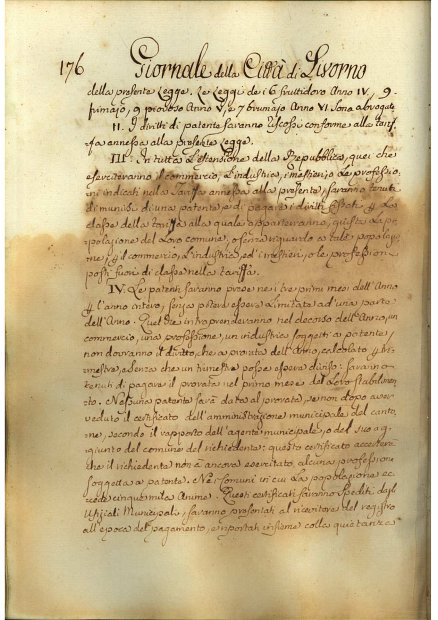 176 Giornale della Città di Livorno
della presente Legge. Le Leggi de i 6 fruttidoro Anno IV, 9
frimajo, 9 piovoso Anno V, e 7 brumajo Anno VI. Sono abrogate
II. I diritti di patente saranno riscossi conforme alla tarif-
fa annessa alla presente Legge.
III. In tutta l'estensione della Repubblica, quei che
eserciteranno il commercio, l'industria, i mestieri, o le professio-
ni indicati nella Tariffa annessa alla presente, saranno tenuti
di munirsi di una patente, e di pagare i diritti fissati La
classe della tariffa alla quale apparteranno, questa La po-
polazione del Loro comune, o senza riguardo a tale popolazio-
ne, il commercio, l'industria, ed i mestieri, o le professioni
posti fuori di classe nella tariffa.
IV. Le patenti saranno prese nei tre primi mesi dell'Anno
l'anno intero, senza potersi essere Limitate ad una parte
dell'Anno. Quei che intraprenderanno nel decorso dell'Anno, un
commercio, una professione, un industria soggetti a patente,
non dovranno il diritto, che a prorata dell'Anno, calcolato tri-
mestre, e senza che un trimestre possa essere diviso: saranno
tenuti di pagare il prorata nel primo mese del Loro stabilimen-
to. Nessuna patente sarà data al prorata, se non dopo aver
veduto il certificato dell'amministrazione municipale del canto-
ne, secondo il rapporto dell'agente municipale, o del suo ag-
giunto del comune del richiedente: questo certificato accerterà
che il richiedente non à ancora esercitato, alcuna professione
soggetta a patente. Nei Comuni in cui La popolazione ec-
cede cinque mila Anime. Questi certificati saranno spediti dagl'
Ufiziali Municipali, saranno presentati al ricevitore del registro
all'epoca del pagamento, e riportati insieme colla quietanza